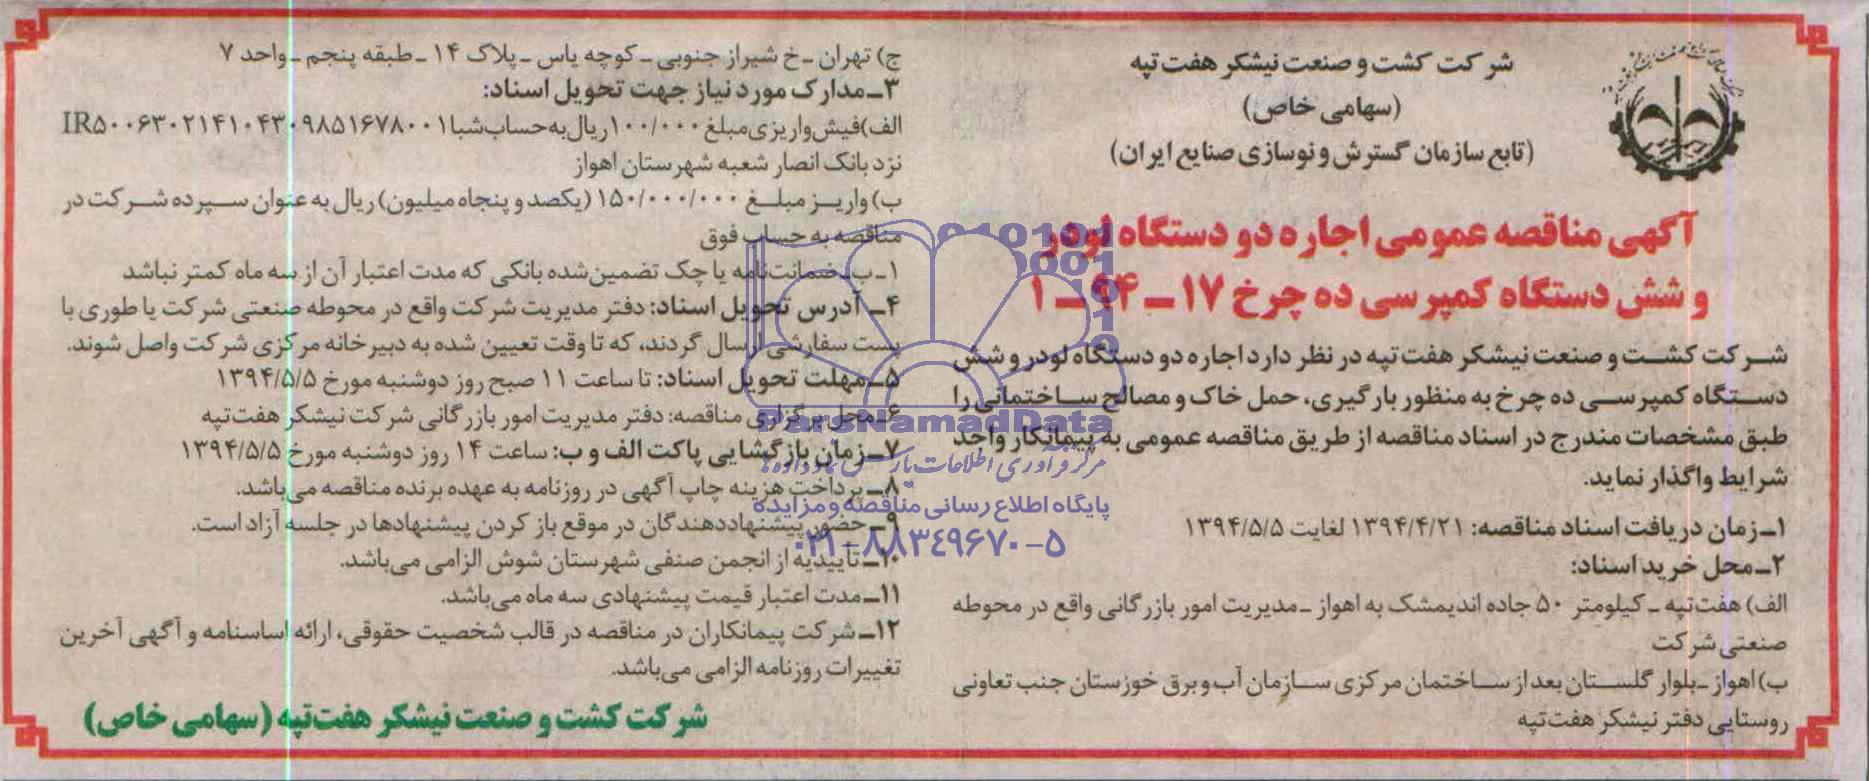 شرکت کشت و صنعت نیشکر هفت‌تپه
(سهامی خاص)
(تابع سازمان گسترش و نوسازی صنایع ایران)
آگهی مناقصه عمومی اجاره دو دستگاه لودر
و شش دستگاه کمپرسی ده چرخ ۱۷ـ۹۴ـ۱
شرکت کشت و صنعت نیشکر هفت‌تپه در نظر دارد اجاره دو دستگاه لودر و شش
دستگاه کمپرسی ده چرخ به منظور بارگیری، حمل خاک و مصالح ساختمانی را
طبق مشخصات مندرج در اسناد مناقصه از طریق مناقصه عمومی به پیمانکار واجد
شرایط واگذار نماید.
۱ـ زمان دریافت اسناد مناقصه: ۱۳۹۴/۴/۲۱ لغایت ۱۳۹۴/۵/۵
۲ـ محل خرید اسناد:
الف) هفت‌تپه ـ کیلومتر ۵۰ جاده اندیمشک به اهواز ـ مدیریت امور بازرگانی واقع در محوطه
صنعتی شرکت
ب) اهواز ـ بلوار گلستان بعد از ساختمان مرکزی سازمان آب و برق خوزستان جنب تعاونی
روستایی دفتر نیشکر هفت‌تپه
ج) تهران ـ خ شیراز جنوبی ـ کوچه یاس ـ پلاک ۱۴ ـ طبقه پنجم ـ واحد ۷
۳ـ مدارک مورد نیاز جهت تحویل اسناد:
الف) فیش واریزی مبلغ ۱۰۰/۰۰۰ ریال به حساب شبا IR۵۰۰۶۳۰۲۱۴۱۰۴۳۰۹۸۵۱۶۷۸۰۰۱
نزد بانک انصار شعبه شهرستان اهواز
ب) واریز مبلغ ۱۵۰/۰۰۰/۰۰۰ (یکصد و پنجاه میلیون) ریال به عنوان سپرده شرکت در
مناقصه به حساب فوق
۱ـ ب ـ ضمانت‌نامه یا چک تضمین‌شده بانکی که مدت اعتبار آن از سه ماه کمتر نباشد
۴ـ آدرس تحویل اسناد: دفتر مدیریت شرکت واقع در محوطه صنعتی شرکت یا طوری با
پست سفارشی ارسال گردند، که تا وقت تعیین شده به دبیرخانه مرکزی شرکت واصل شوند.
۵ـ مهلت تحویل اسناد: تا ساعت ۱۱ صبح روز دوشنبه مورخ ۱۳۹۴/۵/۵
۶ـ محل برگزاری مناقصه: دفتر مدیریت امور بازرگانی شرکت نیشکر هفت‌تپه
۷ـ زمان بازگشایی پاکت الف و ب: ساعت ۱۴ روز دوشنبه مورخ ۱۳۹۴/۵/۵
۸ـ پرداخت هزینه چاپ آگهی در روزنامه به عهده برنده مناقصه می‌باشد.
۹ـ حضور پیشنهاددهندگان در موقع باز کردن پیشنهادها در جلسه آزاد است.
۱۰ـ تاییدیه از انجمن صنفی شهرستان شوش الزامی می‌باشد.
۱۱ـ مدت اعتبار قیمت پیشنهادی سه ماه می‌باشد.
۱۲ـ شرکت پیمانکاران در مناقصه در قالب شخصیت حقوقی، ارائه اساسنامه و آگهی آخرین
تغییرات روزنامه الزامی می‌باشد.
شرکت کشت و صنعت نیشکر هفت‌تپه (سهامی خاص)
ParsNamadData
مرکز فرآوری اطلاعات پارس نماد داده‌ها
پایگاه اطلاع رسانی مناقصه و مزایده
۰۲۱-۸۸۳۴۹۶۷۰-۵